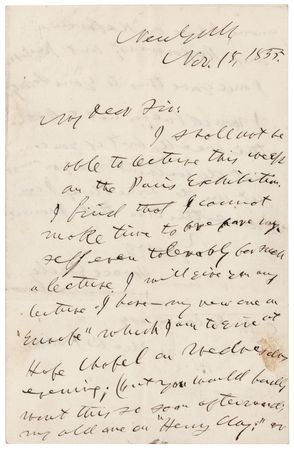 New York
Nov. 18, 1855.
My dear Sir:
I shall not be
able to lecture this week
on the Paris Exhibition.
I find that I cannot
make time to prepare my-
self even tolerably for such
a lecture. I will give you any
lecture I have—my new one on
"Europe" which I am to give at
Hope Chapel on Wednesday
evening; (but you would hardly
want this so soon afterwards)
my old one on "Henry Clay;" or